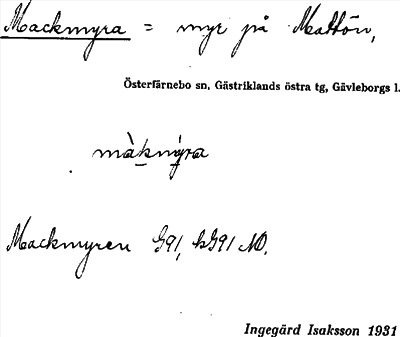 Mackmyra = myr på Mattön,
Österfärnebo sn, Gästriklands östra tg, Gävleborgs l.
màkmy̆ra
Mackmyren G91, kG91 NO.
Ingegärd Isaksson 1931